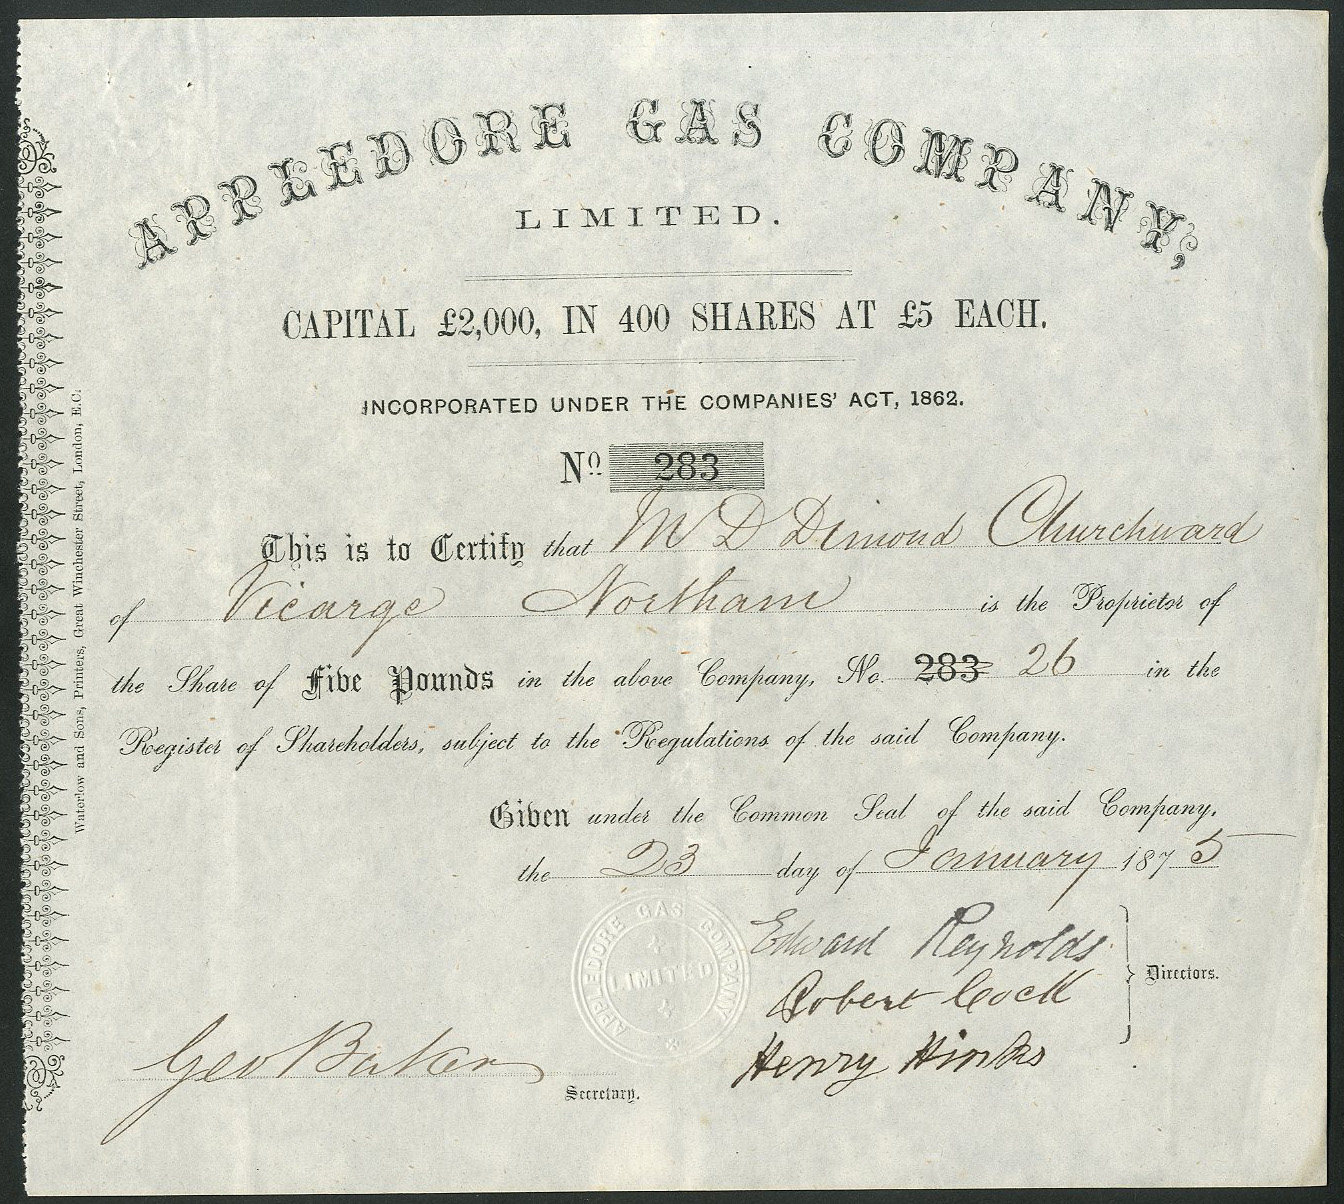 APPLEDORE GAS COMPANY,
LIMITED.
CAPITAL £2,000, IN 400 SHARES AT £5 EACH.
INCORPORATED UNDER THE COMPANIES' ACT, 1862.
No 283
This is to Certify that M D Dimond Churchward
of Vicarge Northam is the Proprietor of
the Share of Five Pounds in the above Company, No. 283 26 in the
Register of Shareholders, subject to the Regulations of the said Company.
Given under the Common Seal of the said Company,
the 23 day of January 1875
APPLEDORE GAS COMPANY
LIMITED
Edward Reynolds
Robert Cock
Henry Hinks
Directors.
Geo Baker
Secretary.
Waterlow and Sons, Printers, Great Winchester Street, London, E.C.